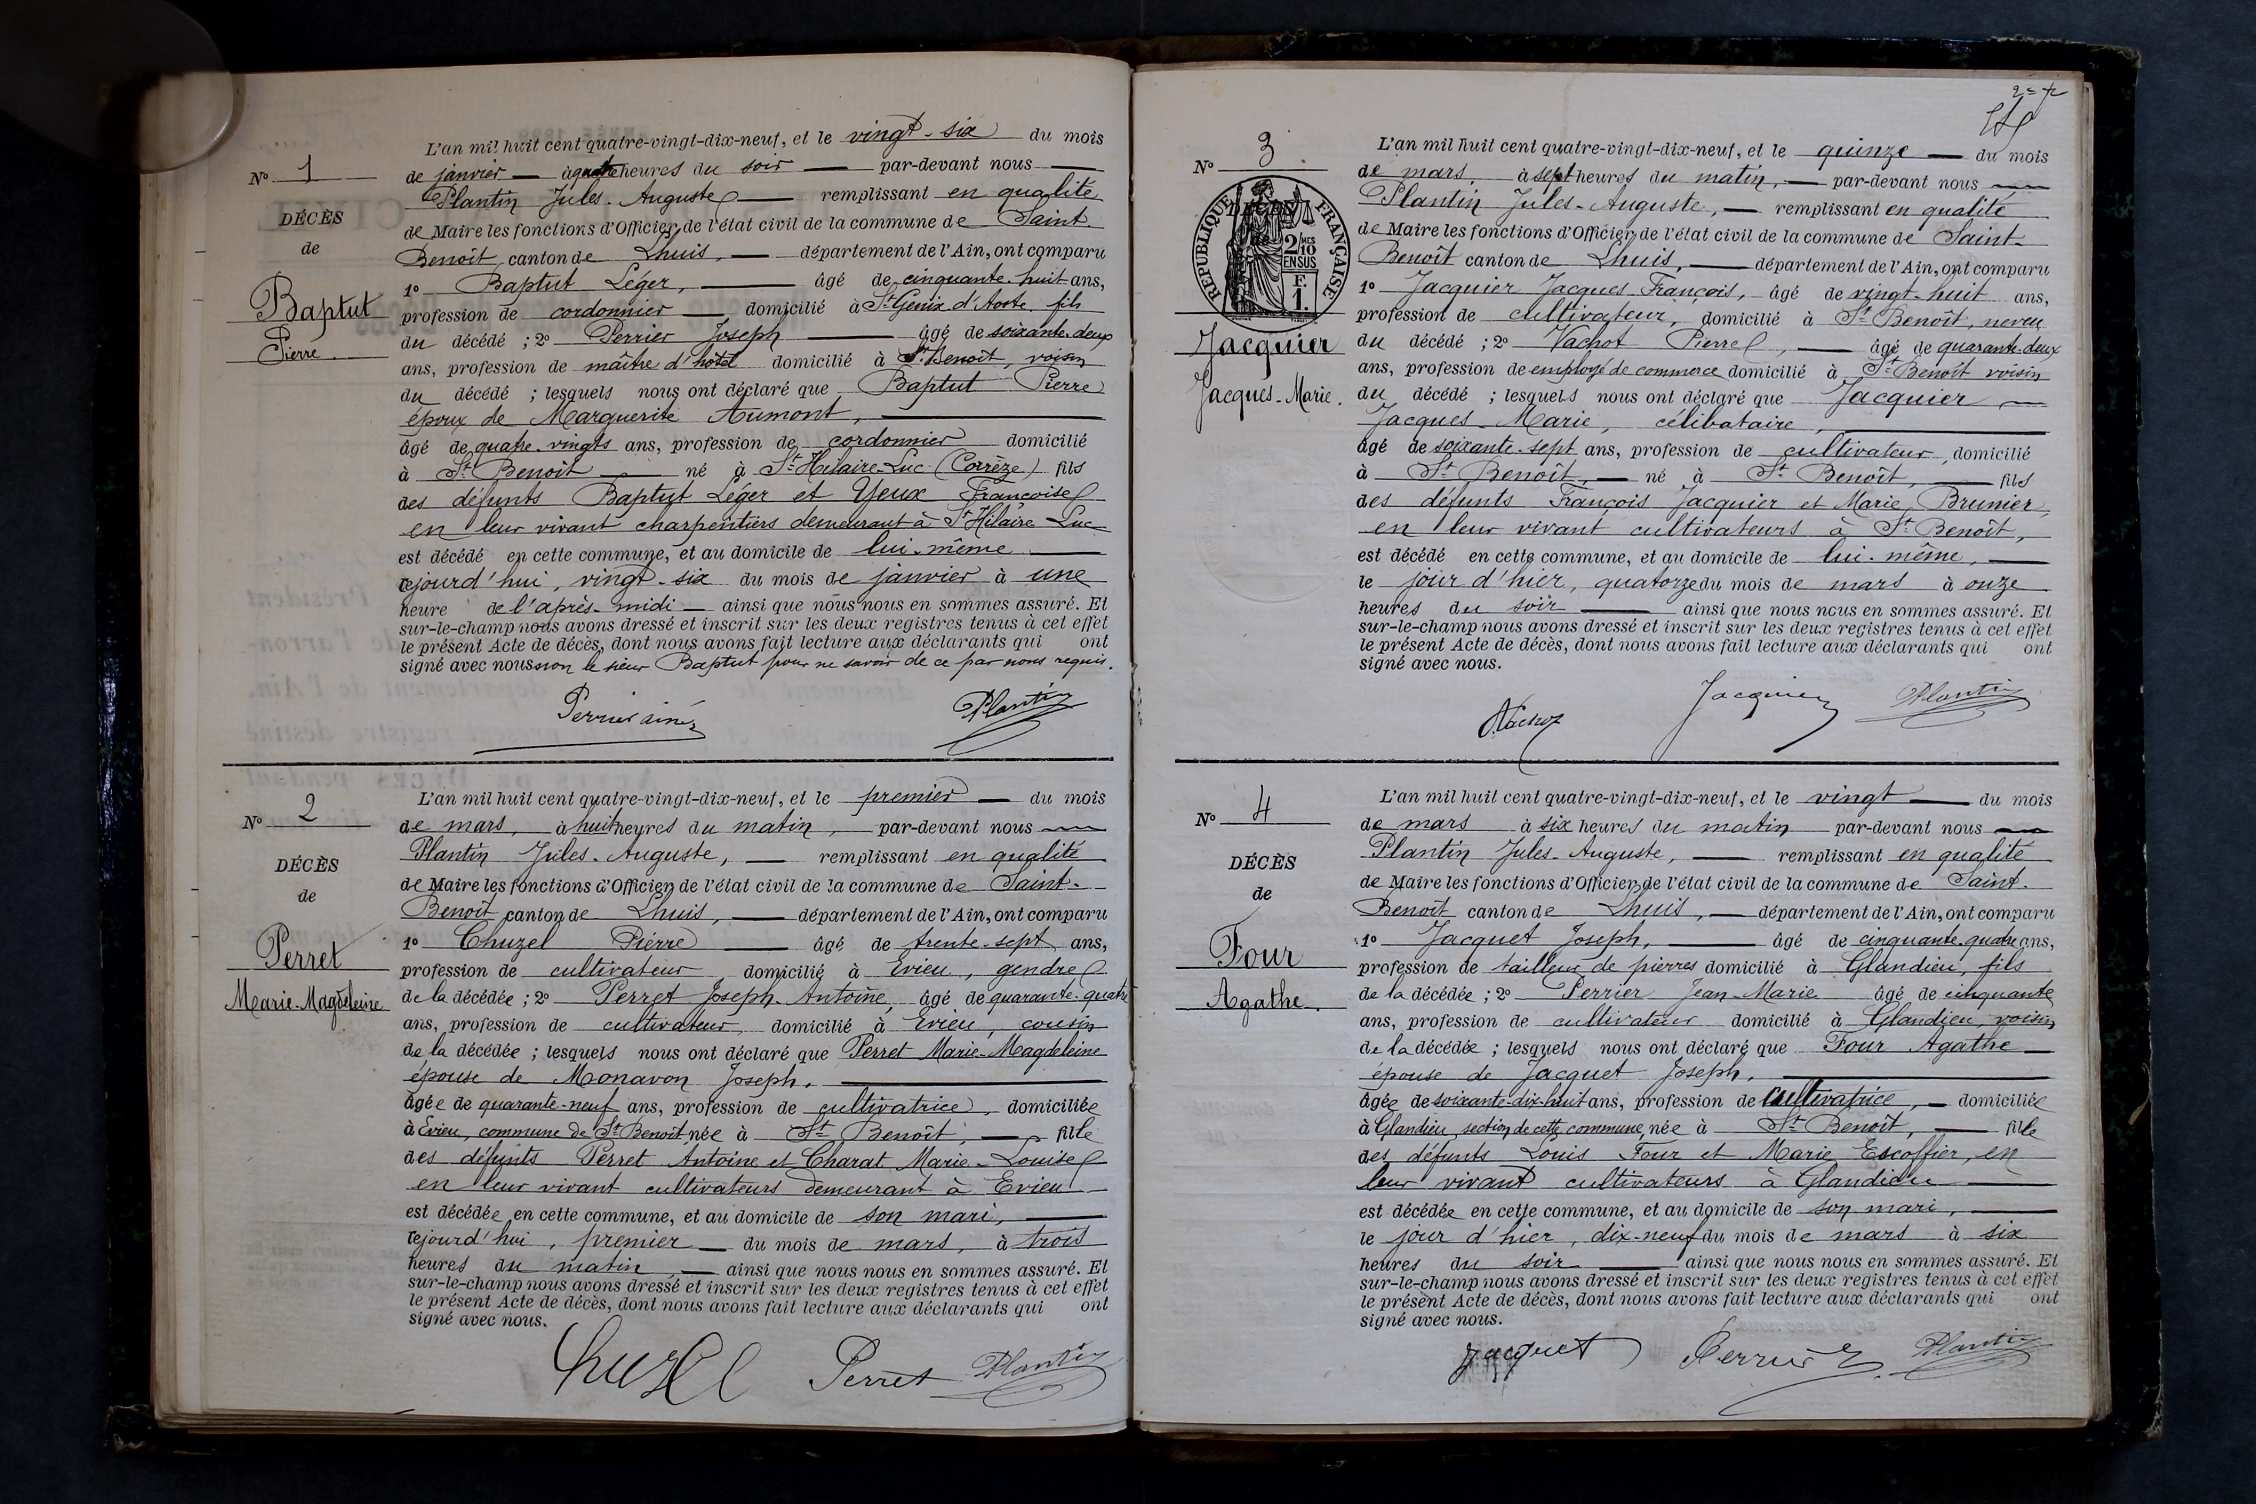 N° 1
DÉCÈS
de
Baptut
Pierre
L'an mil huit cent quatre-vingt-dix-neuf, et le vingt-six du mois
de janvier — à quatre heures du soir — par-devant nous —
Plantin Jules-Auguste — remplissant en qualité
de Maire les fonctions d'Officier de l'état civil de la commune de Saint-
Benoît canton de Lhuis, — département de l'Ain, ont comparu
1° Baptut Léger, — âgé de cinquante-huit ans,
profession de cordonnier — domicilié à St Genix d'Aoste, fils
du décédé ; 2° Perrier Joseph — âgé de soixante-deux
ans, profession de maître d'hôtel domicilié à St Benoît, voisin
du décédé ; lesquels nous ont déclaré que Baptut Pierre
époux de Marguerite Aumont, —
âgé de quatre-vingts ans, profession de cordonnier domicilié
à St Benoît — né à St Hilaire-Luc (Corrèze) fils
des défunts Baptut Léger et Yeux Françoise
en leur vivant charpentiers demeurant à St Hilaire-Luc
est décédé en cette commune, et au domicile de lui-même —
cejourd'hui, vingt-six du mois de janvier à une
heure de l'après-midi — ainsi que nous nous en sommes assuré. Et
sur-le-champ nous avons dressé et inscrit sur les deux registres tenus à cet effet
le présent Acte de décès, dont nous avons fait lecture aux déclarants qui ont
signé avec nous non le sieur Baptut pour ne savoir de ce par nous requis.
Perrier ainé Plantin
N° 2
DÉCÈS
de
Perret
Marie-Magdeleine
L'an mil huit cent quatre-vingt-dix-neuf, et le premier — du mois
de mars, à huit heures du matin, — par-devant nous —
Plantin Jules-Auguste, — remplissant en qualité
de Maire les fonctions d'Officier de l'état civil de la commune de Saint-
Benoît canton de Lhuis, — département de l'Ain, ont comparu
1° Chuzel Pierre — âgé de trente-sept ans,
profession de cultivateur domicilié à Evieu, gendre
de la décédée ; 2° Perret Joseph-Antoine, âgé de quarante-quatre
ans, profession de cultivateur domicilié à Evieu, cousin
de la décédée ; lesquels nous ont déclaré que Perret Marie-Magdeleine
épouse de Monavon Joseph, —
âgée de quarante-neuf ans, profession de cultivatrice, domiciliée
à Evieu, commune de St Benoît née à St Benoît, — fille
des défunts Perret Antoine et Charat Marie-Louise
en leur vivant cultivateurs demeurant à Evieu
est décédée en cette commune, et au domicile de son mari, —
cejourd'hui, premier — du mois de mars, à trois
heures du matin, — ainsi que nous nous en sommes assuré. Et
sur-le-champ nous avons dressé et inscrit sur les deux registres tenus à cet effet
le présent Acte de décès, dont nous avons fait lecture aux déclarants qui ont
signé avec nous.
Chuzel Perret Plantin
N° 3
DÉCÈS
RÉPUBLIQUE FRANÇAISE
2/10 MES
EN SUS
F.
1.
Jacquier
Jacques-Marie.
L'an mil huit cent quatre-vingt-dix-neuf, et le quinze — du mois
de mars, à sept heures du matin, — par-devant nous —
Plantin Jules-Auguste, — remplissant en qualité
de Maire les fonctions d'Officier de l'état civil de la commune de Saint-
Benoît canton de Lhuis, — département de l'Ain, ont comparu
1° Jacquier Jacques-François, âgé de vingt-huit ans,
profession de cultivateur, domicilié à St Benoît, neveu
du décédé ; 2° Vachot Pierre, — âgé de quarante-deux
ans, profession de employé de commerce domicilié à St Benoît voisin
du décédé ; lesquels nous ont déclaré que Jacquier —
Jacques-Marie, célibataire, —
âgé de soixante-sept ans, profession de cultivateur, domicilié
à St Benoît, — né à St Benoît, — fils
des défunts François Jacquier et Marie Brunier,
en leur vivant cultivateurs à St Benoît,
est décédé en cette commune, et au domicile de lui-même, —
le jour d'hier, quatorze du mois de mars à onze
heures du soir — ainsi que nous nous en sommes assuré. Et
sur-le-champ nous avons dressé et inscrit sur les deux registres tenus à cet effet
le présent Acte de décès, dont nous avons fait lecture aux déclarants qui ont
signé avec nous.
Jacquier Plantin
N° 4
DÉCÈS
de
Four
Agathe.
L'an mil huit cent quatre-vingt-dix-neuf, et le vingt — du mois
de mars à six heures du matin par-devant nous —
Plantin Jules-Auguste, — remplissant en qualité
de Maire les fonctions d'Officier de l'état civil de la commune de Saint-
Benoît canton de Lhuis, — département de l'Ain, ont comparu
1° Jacquet Joseph, — âgé de cinquante-quatre ans,
profession de tailleur de pierres domicilié à Glandieu, fils
de la décédée ; 2° Perrier Jean-Marie âgé de cinquante
ans, profession de cultivateur domicilié à Glandieu, voisin
de la décédée ; lesquels nous ont déclaré que Four Agathe —
épouse de Jacquet Joseph, —
âgée de soixante-dix-huit ans, profession de cultivatrice, — domiciliée
à Glandieu, section de cette commune, née à St Benoît, — fille
des défunts Louis Four et Marie Escoffier, en
leur vivant cultivateurs à Glandieu —
est décédée en cette commune, et au domicile de son mari, —
le jour d'hier, dix-neuf du mois de mars à six
heures du soir — ainsi que nous nous en sommes assuré. Et
sur-le-champ nous avons dressé et inscrit sur les deux registres tenus à cet effet
le présent Acte de décès, dont nous avons fait lecture aux déclarants qui ont
signé avec nous.
Jacquet Perrier Plantin